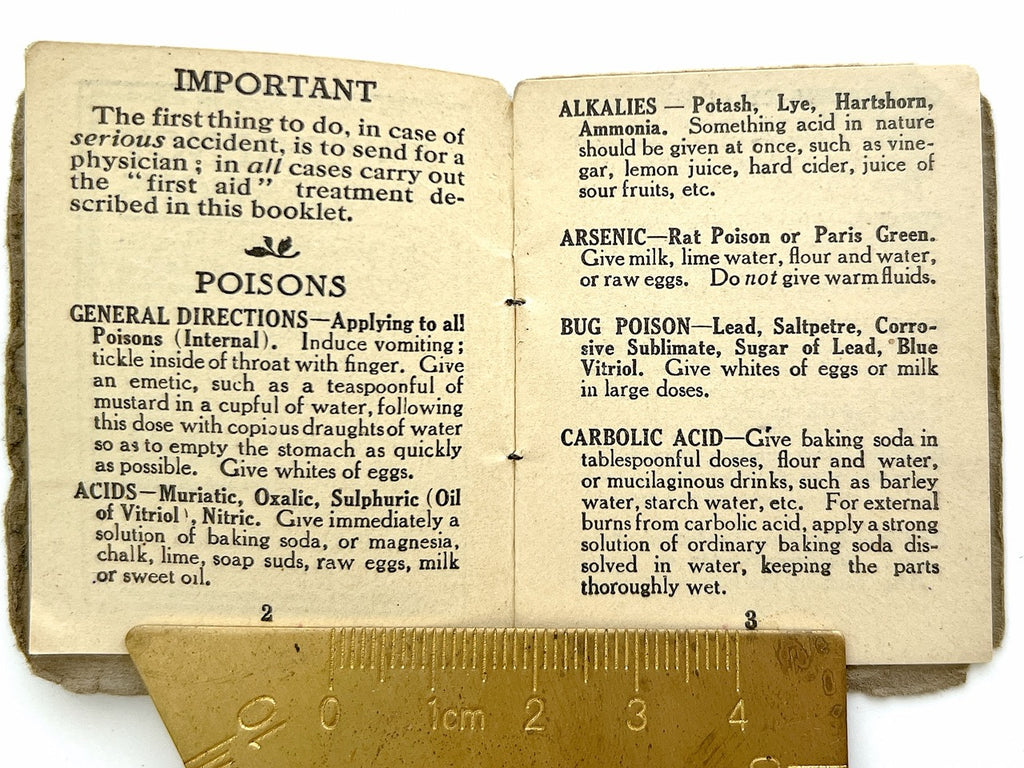 IMPORTANT
The first thing to do, in case of
serious accident, is to send for a
physician ; in all cases carry out
the "first aid" treatment de-
scribed in this booklet.
POISONS
GENERAL DIRECTIONS—Applying to all
Poisons (Internal). Induce vomiting ;
tickle inside of throat with finger. Give
an emetic, such as a teaspoonful of
mustard in a cupful of water, following
this dose with copious draughts of water
so as to empty the stomach as quickly
as possible. Give whites of eggs.
ACIDS—Muriatic, Oxalic, Sulphuric (Oil
of Vitriol), Nitric. Give immediately a
solution of baking soda, or magnesia,
chalk, lime, soap suds, raw eggs, milk
or sweet oil.
2
ALKALIES — Potash, Lye, Hartshorn,
Ammonia. Something acid in nature
should be given at once, such as vine-
gar, lemon juice, hard cider, juice of
sour fruits, etc.
ARSENIC—Rat Poison or Paris Green.
Give milk, lime water, flour and water,
or raw eggs. Do not give warm fluids.
BUG POISON—Lead, Saltpetre, Corro-
sive Sublimate, Sugar of Lead, Blue
Vitriol. Give whites of eggs or milk
in large doses.
CARBOLIC ACID—Give baking soda in
tablespoonful doses, flour and water,
or mucilaginous drinks, such as barley
water, starch water, etc. For external
burns from carbolic acid, apply a strong
solution of ordinary baking soda dis-
solved in water, keeping the parts
thoroughly wet.
3
0 1cm 2 3 4
0